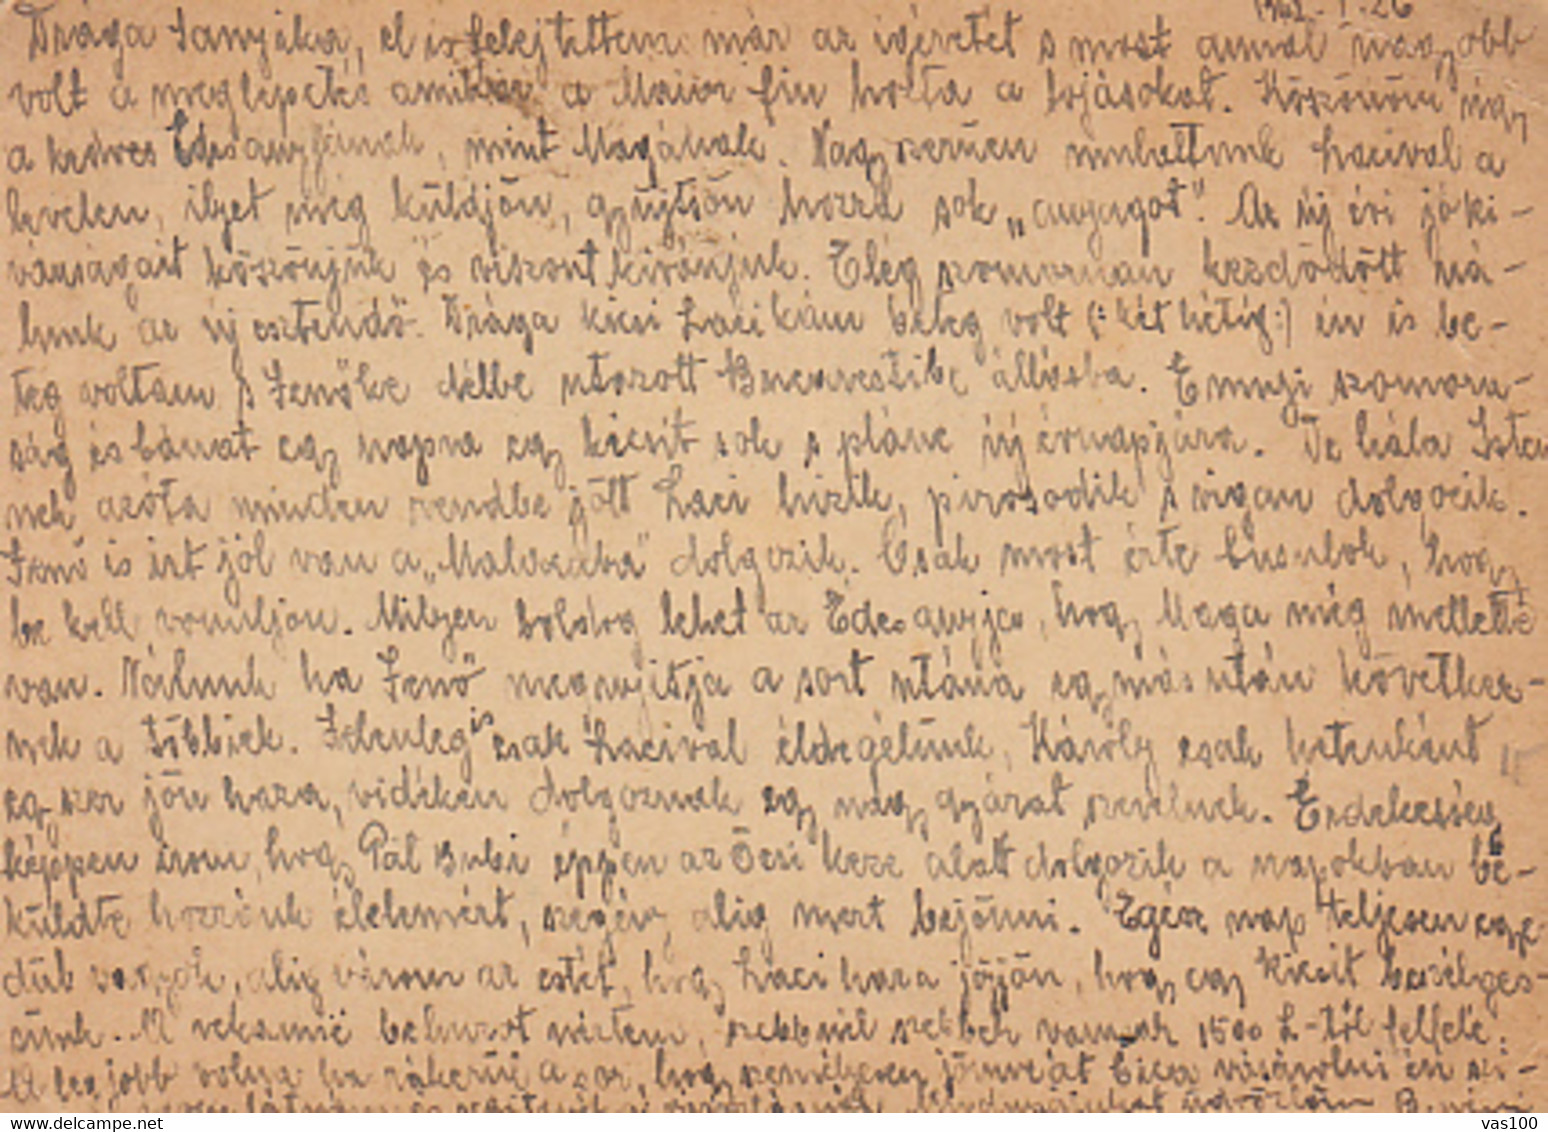 1942. I. 26
Drága Sanyika, el is felejtettem már az igéretet s most annál nagyobb
volt a meglepetés amikor a Maior fiu hozta a tojásokat. Köszönöm ugy
a kedves Édesanyjának, mint Magának. Nagyszerüen mulattunk Lacival a
levelen, ilyet még küldjön, gyüjtsön hozzá sok „anyagot". Az uj évi jóki-
vánságait köszönjük és viszont kivánjuk. Elég szomoruan kezdődött ná-
lunk az uj esztendő. Drága kicsi Lacikám beteg volt (: két hétig :) én is be-
teg voltam s Jenőke délbe utazott Bucurestibe állásba. Ennyi szomoru-
ság és bánat egy napra egy kicsit sok s pláne uj évnapjára. De hála Isten
nek azóta minden rendbe jött Laci hizik, pirosodik s vigan dolgozik.
Jenő is irt jól van a „Malaxába" dolgozik. Csak most érte busulok, hogy
be kell vonuljon. Milyen boldog lehet az Édesanyja, hogy Maga még mellette
van. Nálunk ha Jenő megnyitja a sort utána egymásután következ-
nek a többiek. Jelenleg is csak Lacival éldegélünk, Károly csak hetenként
egyszer jön haza, vidéken dolgoznak egy nagy gyárat szerelnek. Érdekesség
képpen irom, hogy Pál Bubi éppen az Öcsi keze alatt dolgozik a napokban be-
küldte hozzánk élelemért, szegény alig mert bejönni. Egész nap teljesen egye
dül vagyok, alig várom az estét, hogy Laci haza jöjjön, hogy egy kicsit beszélges-
sünk. A rekamié behuzot néztem, szebbnél szebbek vannak 1500 L-től felfelé.
A legjobb volna ha rákerül a sor, hogy személyesen jönne át Éva vásárolni én szi-